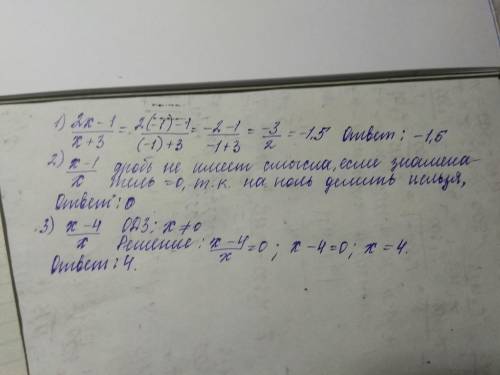 1) (2x-1)/(x+3) = (2(-1)-1)/((-1)+3) = (-2-1)/(-1+3) = (-3)/2 = -1,5 Ответ: -1,5
2) (x-1)/x дробь не имеет смысла, если знамена-
тель =0, т.к. на ноль делить нельзя,
Ответ: 0
3) (x-4)/x ОДЗ: x≠0
Решение: (x-4)/x = 0; x-4=0; x=4.
Ответ: 4.